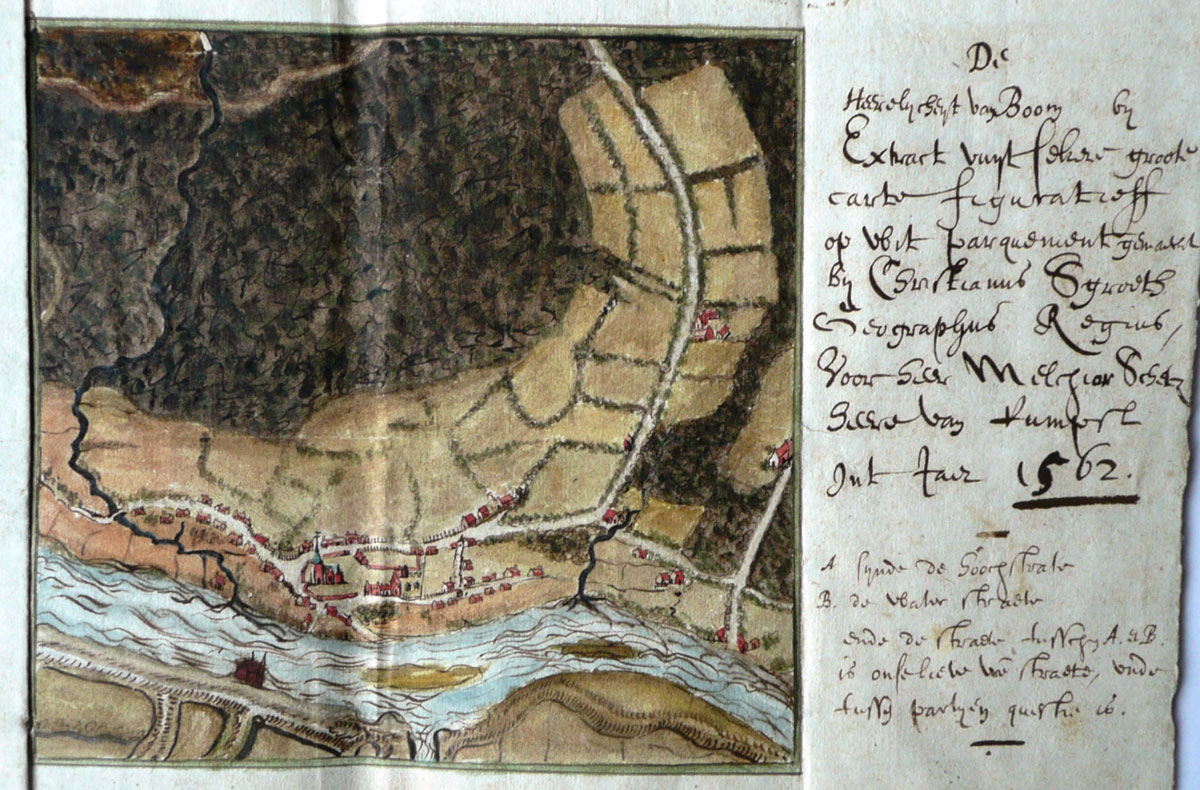 De
Heerelijcheijt van Boom bij
Extract uuijt sekere groote
carte figuratieff
op wit parquement gemaect
Bij Christianus Sgrooth
Geographus Regius,
Voor heer Melchior Schetz
heere van Rumpst
Int Jaer 1562.
A sijnde de Hoochstrate
B. de water straete
ende de straete tusschen A. et B.
is onse lieve straete,
partijen questie is.